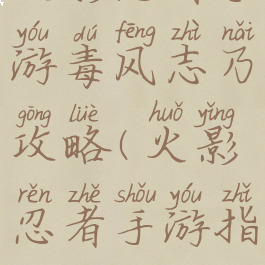 yóu dú fēng zhì nǎi
游毒风志乃
gōng lüè huǒ yǐng
攻略(火影
rěn zhě shǒu yóu zhǐ
忍者手游指